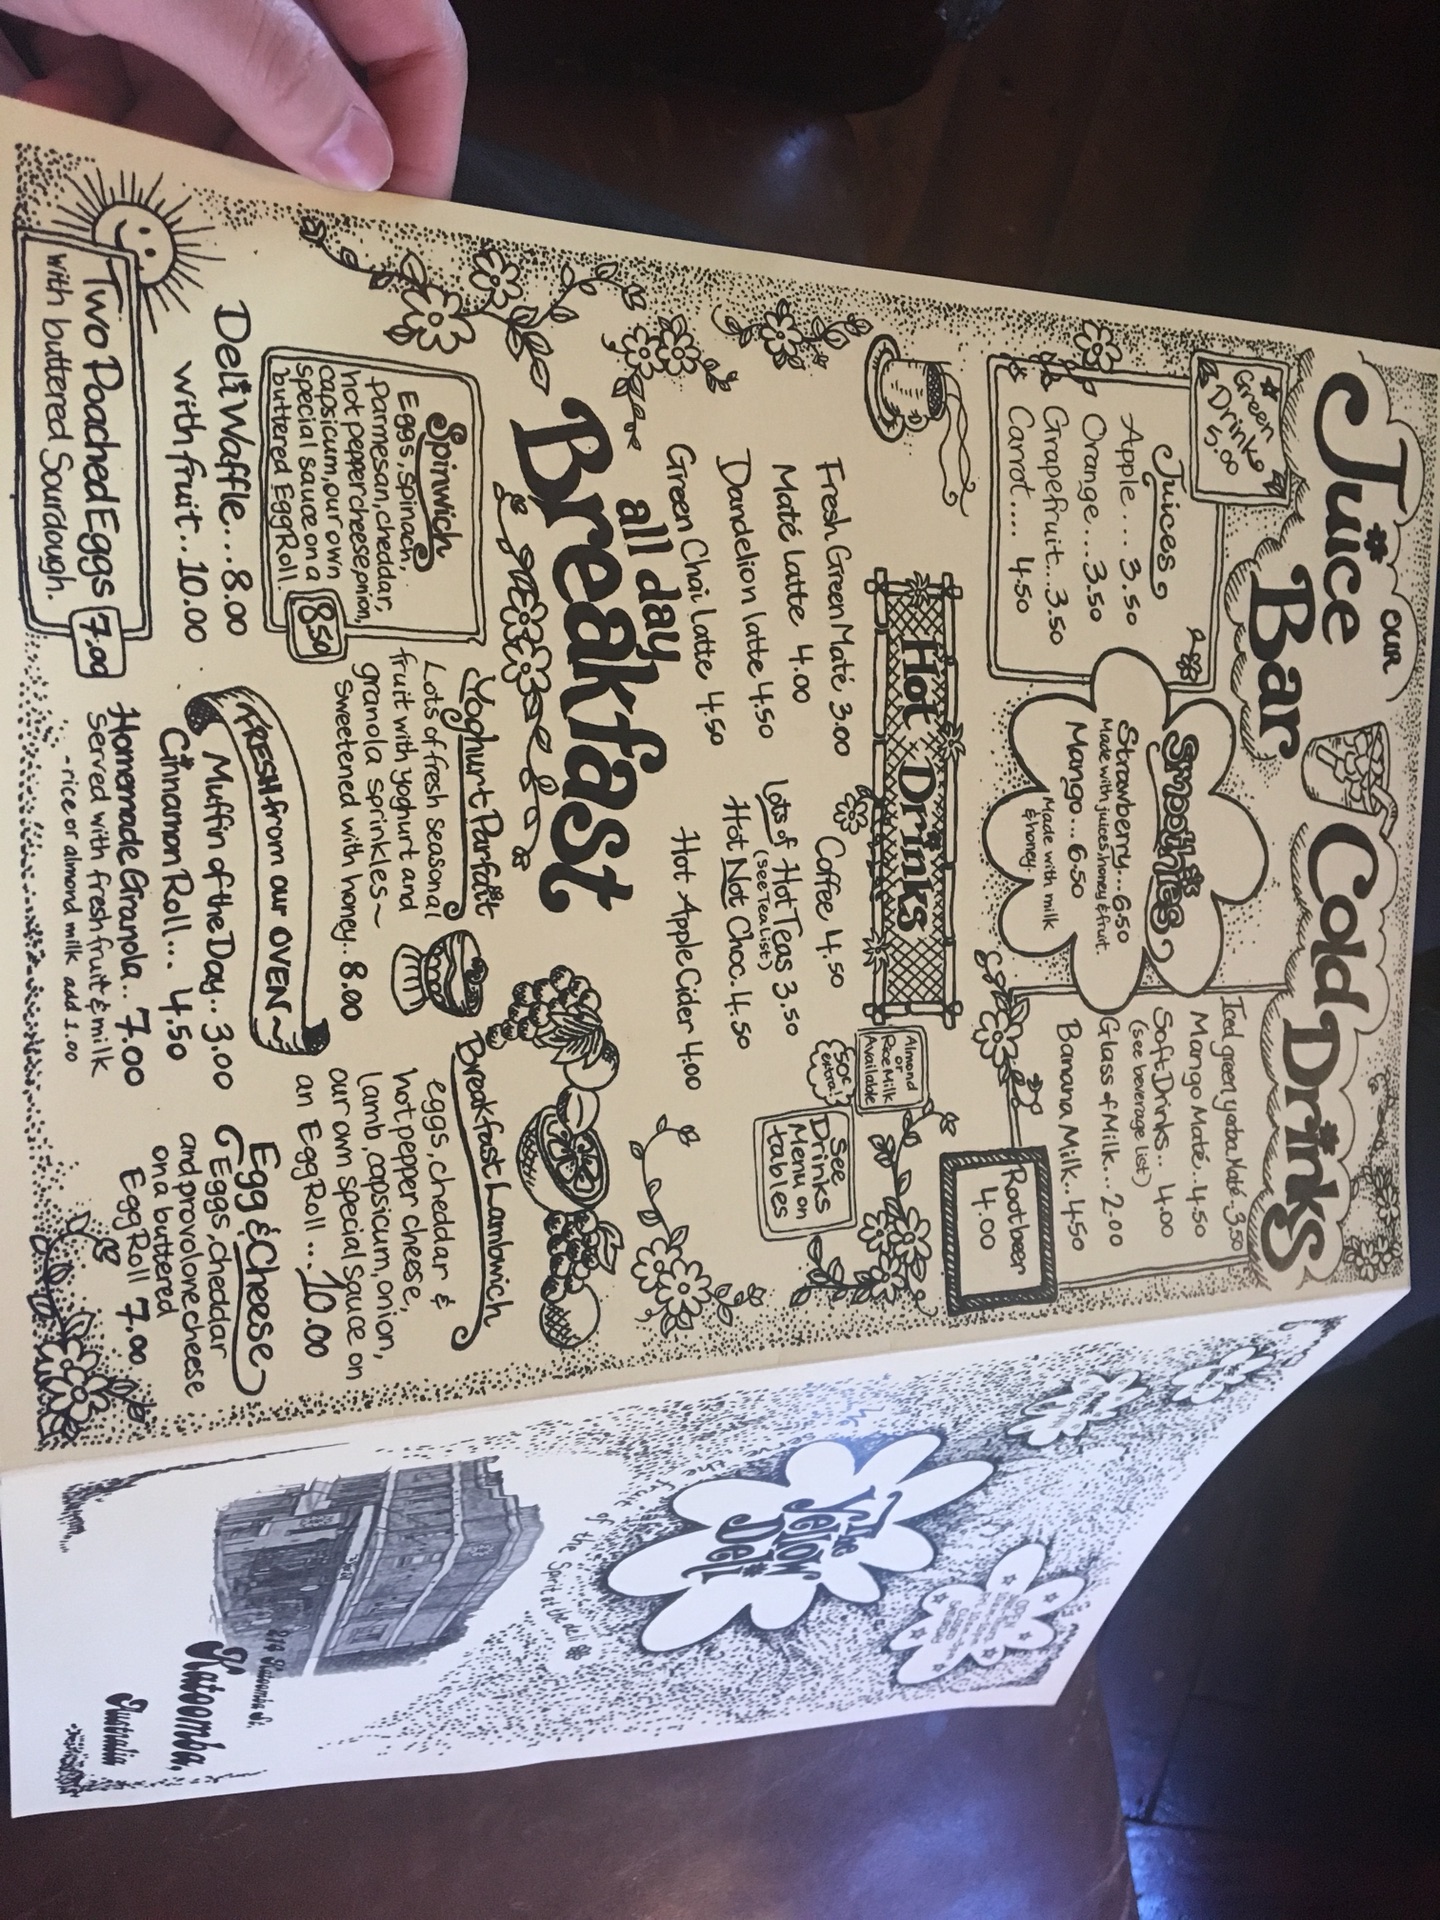 our
Juice
Bar
Green
Drink
5.00
Juices
Apple... 3.50
Orange...3.50
Grapefruit...3.50
Carrot.... 4.50
Smoothies
Strawberry...6.50
Made with juices, honey & fruit.
Mango...6.50
Made with milk
& honey.
Cold Drinks
Iced green yerba Maté 3.50
Mango Maté..4.50
Soft Drinks.. 4.00
(see beverage list)
Glass of Milk..2.00
Banana Milk..4.50
Rootbeer
4.00
Hot Drinks
Fresh Green Maté 3.00
Maté Latte 4.00
Dandelion latte 4.50
Green Chai Latte 4.50
Coffee 4.50
Lots of Hot Teas 3.50
(see Tea List)
Hot Not Choc. 4.50
Hot Apple Cider 4.00
Almond
or
Rice Milk
Available
50¢
extra!
See
Drinks
Menu on
tables
all day
Breakfast
Spinwich
Eggs, spinach,
Parmesan, cheddar,
hot pepper cheese, onion,
capsicum, our own
special sauce on a
buttered Egg Roll.
8.50
Deli Waffle...8.00
with fruit..10.00
Two Poached Eggs 7.00
with buttered Sourdough.
Yoghurt Parfait
Lots of fresh seasonal
fruit with yoghurt and
granola sprinkles~
Sweetened with honey..8.00
FRESH from our OVEN~
Muffin of the Day..3.00
Cinnamon Roll... 4.50
Homemade Granola.. 7.00
Served with fresh fruit & milk
-rice or almond milk add 1.00
Breakfast Lambwich
eggs, cheddar &
hot pepper cheese,
lamb, capsicum, onion,
our own special sauce on
an Egg Roll...10.00
Egg & Cheese
Eggs, cheddar
and provolone cheese
on a buttered
Egg Roll 7.00
The
Yellow
Deli
the fruit of the Spirit at the deli
214 Katoomba St.
Katoomba,
Australia